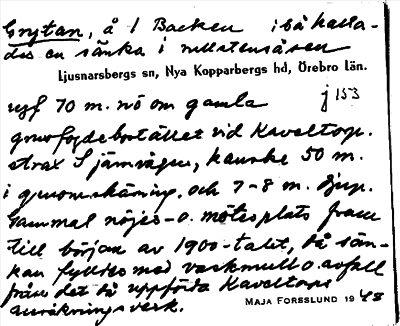 Grytan, å 1 Backen i så kalla-
des en sänka i rullstensåsen
Ljusnarsbergs sn, Nya Kopparbergs hd, Örebro län.
ung 70 m. nö om gamla j 153
gruvfogdebostället vid Kaveltorp.
strax S järnvägen, kanske 50 m.
i genomskärning, och 7-8 m. djup.
Gammal nöjes- o. mötesplats fram
till början av 1900-talet, då sän-
kan fylldes med varkmull o. avfall
från det då uppförda Kaveltorps
anrikningsverk.
MAJA FORSSLUND 1943